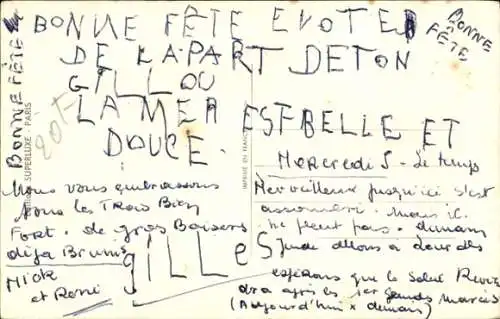 BONNE FÊTE
BONNE FÊTE
BONNE FÊTE EVOTE
DE LAPART DETON
GILLOU
LA MER EST BELLE ET
DOUCE.
20F
SUPERLUXE - PARIS
IMPRIMÉ EN FRANCE
Nous vous embrassons
tous les Trois Bien
Fort. de gros Baisers
déja Brunis
Mick
et René
GILLES
Mercredi 5 - Le temps
Merveilleux jusqu'ici s'est
assombri. Mais il
ne pleut pas. demain
Jude allons à
espérons que le Soleil
après les 1er grandes marées
(Aujourd'hui x demain)